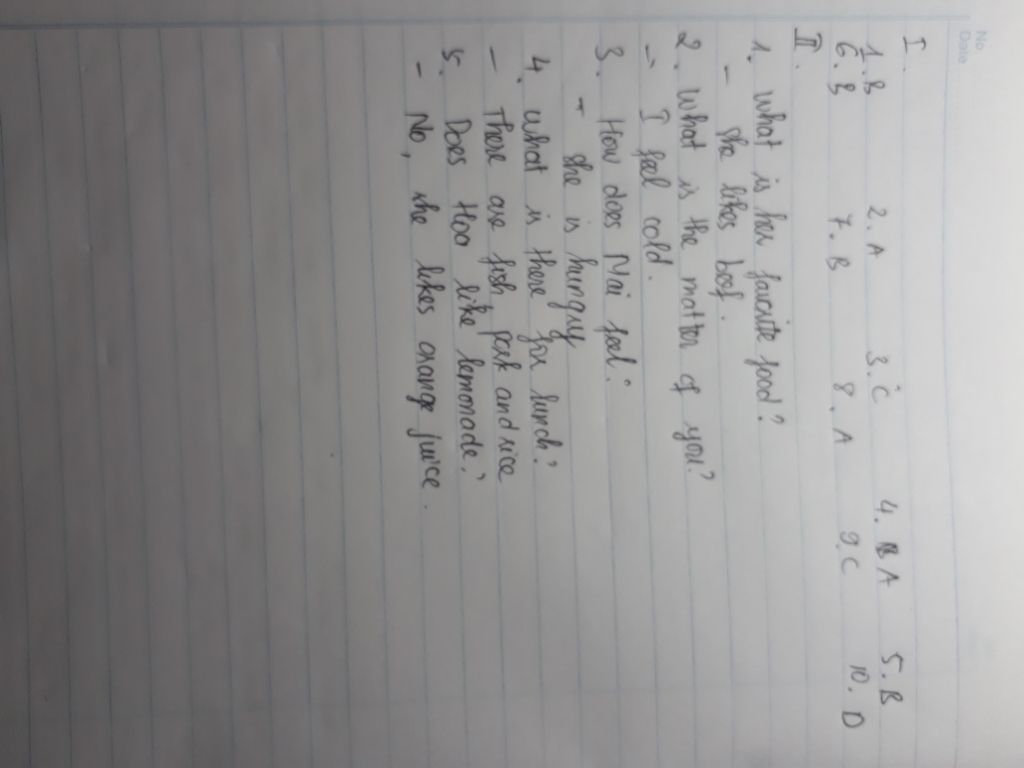 No.
Date
I.
1. B 2. A 3. C 4. A 5. B
6. B 7. B 8. A 9. C 10. D
II.
1. what is her favorite food?
- she likes beef.
2. what is the matter of you?
- I feel cold.
3. How does Mai feel?
+ she is hungry
4. what is there for lunch?
- There are fish, pork and rice
5. Does Hoa like lemonade?
- No, she likes orange juice.